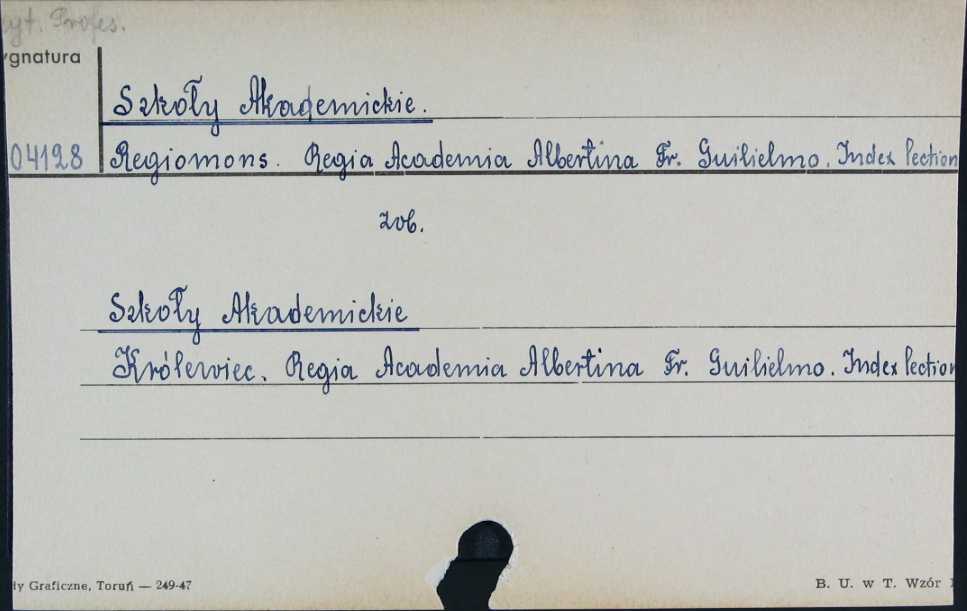 Profes.
ygnatura
Szkoły Akademickie.
04128 Regiomons. Regia Academia Albertina Fr. Guilielmo. Index lection
zob.
Szkoły Akademickie
Królewiec. Regia Academia Albertina Fr. Guilielmo. Index lection
ty Graficzne, Toruń — 249-47
B. U. w T. Wzór